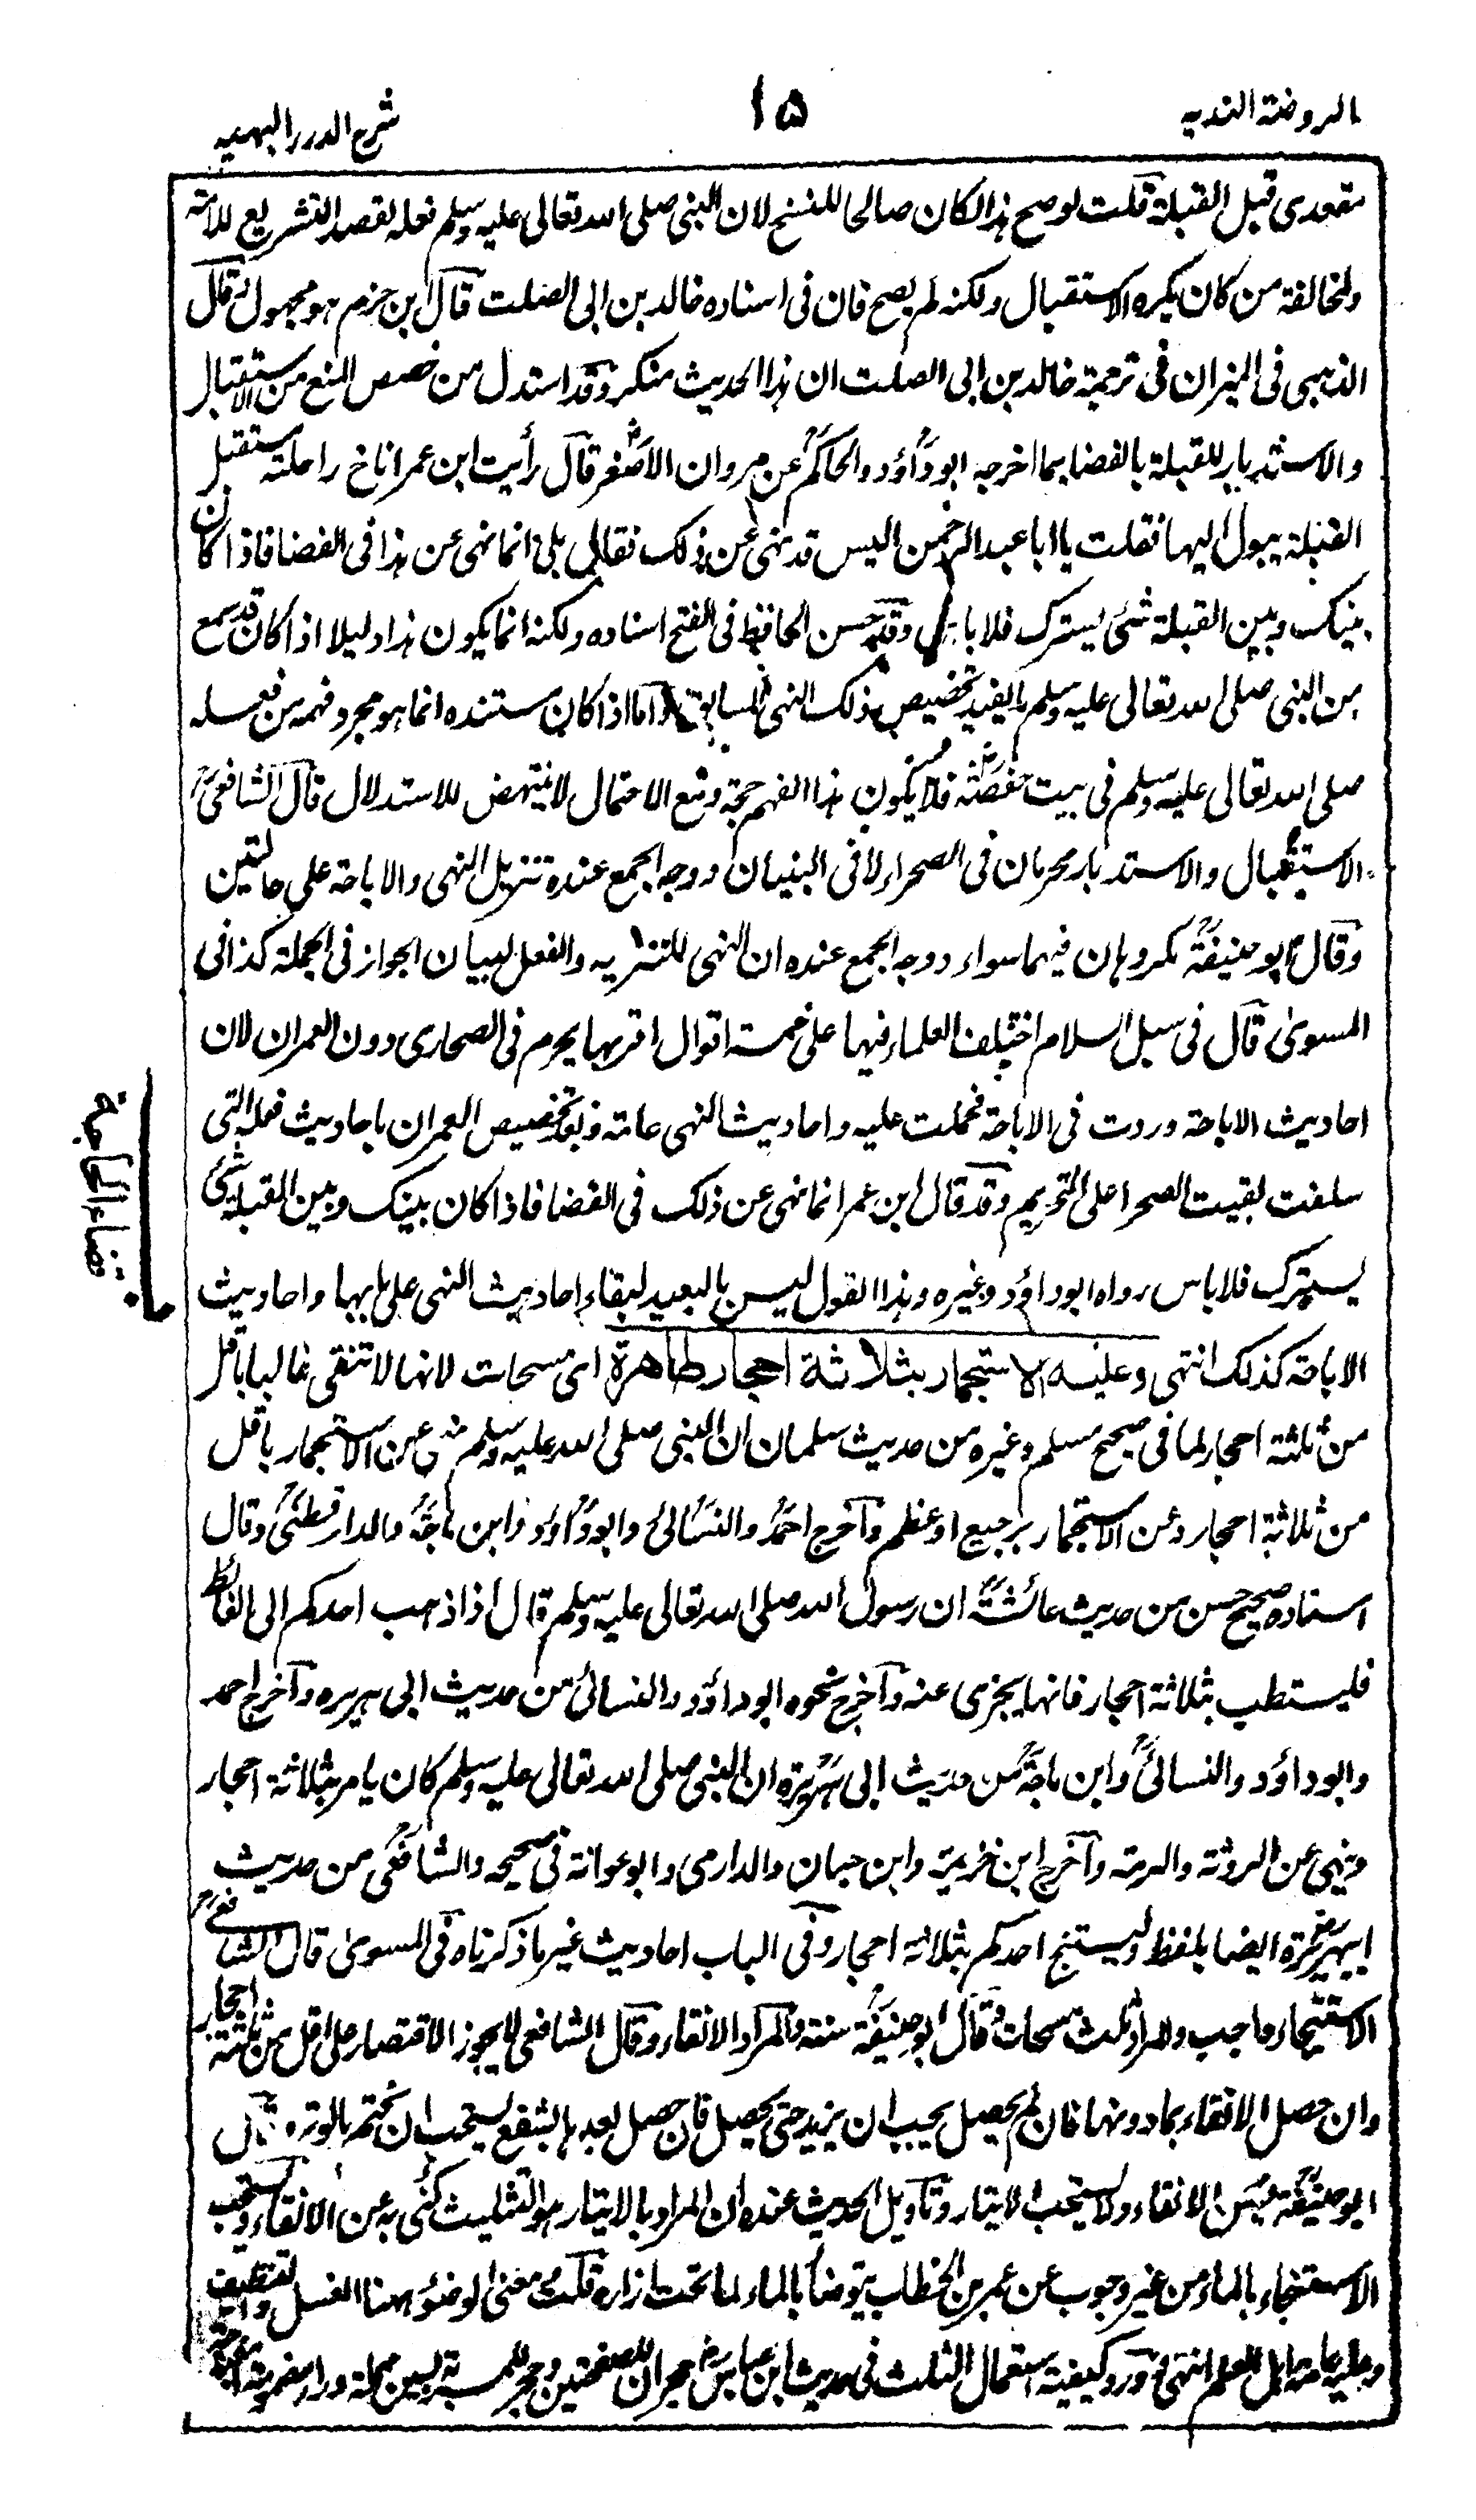 الروضة الندیه
۱۵
شرح الدرر البهیه
مقعدی قبل القبلة قلت لوصح هذا لکان صالحا للنسخ لان النبی صلی الله تعالی علیه وسلم فعله لقصد التشریع للامته
ولمخالفة من کان یکره الاستقبال ولکنه لم یصح فان فی اسناده خالد بن ابی الصلت قال ابن حزم هو مجهول قال
الذهبی فی المیزان فی ترجمة خالد بن ابی الصلت ان هذا الحدیث منکر وقد استدل من خصص المنع من الاستقبال
والاستدبار للقبلة بالفضا بما اخرجه ابوداؤد والحاکم عن مروان الاصغر قال رأیت ابن عمر اناخ راحلته مستقبل
القبلة یبول الیها فقلت یا ابا عبد الرحمن الیس قد نهی عن ذلک فقال بلی انما نهی عن هذا فی الفضا فاذا کان
بینک وبین القبلة شئ یسترک فلا باس وقد حسن الحافظ فی الفتح اسناده ولکنه انما یکون هذا دلیلا اذا کان قد سمع
من النبی صلی الله تعالی علیه وسلم ما یفید تخصیص ذلک النهی السابق واما اذا کان مستنده انما هو مجرد فهمه من فعله
صلی الله تعالی علیه وسلم فی بیت حفصة فلا یکون هذا الفهم حجة ومع الاحتمال لا ینتهض للاستدلال قال الشافعی
الاستقبال والاستدبار محرمان فی الصحراء لا فی البنیان ووجه الجمع عنده تنزیل النهی والاباحة علی حالتین
وقال ابو حنیفة مکروهان فیهما سواء ووجه الجمع عنده ان النهی للتنزیه والفعل لبیان الجواز فی الجملة کذا فی
المسوی قال فی سبل السلام اختلف العلماء فیها علی خمسة اقوال اقربها یحرم فی الصحاری دون العمران لان
احادیث الاباحة وردت فی الاباحة فحملت علیه واحادیث النهی عامة وبعد تخصیص العمران باحادیث فعله التی
سلفت بقیت الصحرا علی التحریم وقد قال ابن عمر انما نهی عن ذلک فی الفضا فاذا کان بینک وبین القبلة شئ
یسترک فلا باس رواه ابوداؤد وغیره وهذا القول لیس بالبعید لبقاء احادیث النهی علی بابها واحادیث
الاباحة کذلک انتهی وعلیه الاستجمار بثلاثة احجار طاهرة ای مسحات لانها لا تنقی غالبا باقل
من ثلثة احجار لما فی صحیح مسلم وغیره من حدیث سلمان ان النبی صلی الله علیه وسلم نهی عن الاستجمار باقل
من ثلاثة احجار وعن الاستجمار برجیع او عظم وآخرج احمد والنسائی وابوداؤد وابن ماجة والدارقطنی وقال
اسناده صحیح حسن من حدیث عائشة ان رسول الله صلی الله تعالی علیه وسلم قال اذا ذهب احدکم الی الغائط
فلیستطب بثلاثة احجار فانها یجزی عنه وآخرج نحوه ابوداؤد والنسائی من حدیث ابی هریره وآخرج احمد
وابوداؤد والنسائی وابن ماجة من حدیث ابی هریرة ان النبی صلی الله تعالی علیه وسلم کان یامر بثلاثة احجار
وینهی عن الروثة والرمة وآخرج ابن خزیمة وابن حبان والدارمی وابوعوانة فی صحیحه والشافعی من حدیث
ابی هریرة ایضا بلفظ ولیستنج احدکم بثلاثة احجار وفی الباب احادیث غیر ما ذکرناه فی المسوی قال الشافعی
الاستنجاء واجب والمراد ثلث مسحات وقال ابو حنیفة سنة والمراد الانقاء وقال الشافعی لا یجوز الاقتصار علی اقل من ثلثة احجار
وان حصل الانقاء بما دونها فان لم یحصل یجب ان یزید حتی یحصل فان حصل بعدها بالشفع یستحب ان یختم بالوتر وقال
ابو حنیفة یسن الانقاء ولا یستحب الایتار وتاویل الحدیث عنده ان المراد بالایتار هو التثلیث کنی به عن الانقاء ویستحب
الاستنجاء بالماء من غیر وجوب عن عمر بن الخطاب یتوضأ بالماء لما تحت ازاره قلت معنی الوضؤ ههنا الغسل والتنظیف
وعلیه عامة اهل العلم انتهی وورد کیفیة استعمال الثلث فی حدیث ابن عباس حجران للصفحتین وحجر للمسربة بسین مهملة وراء مضمومة
قضاء الحاجة